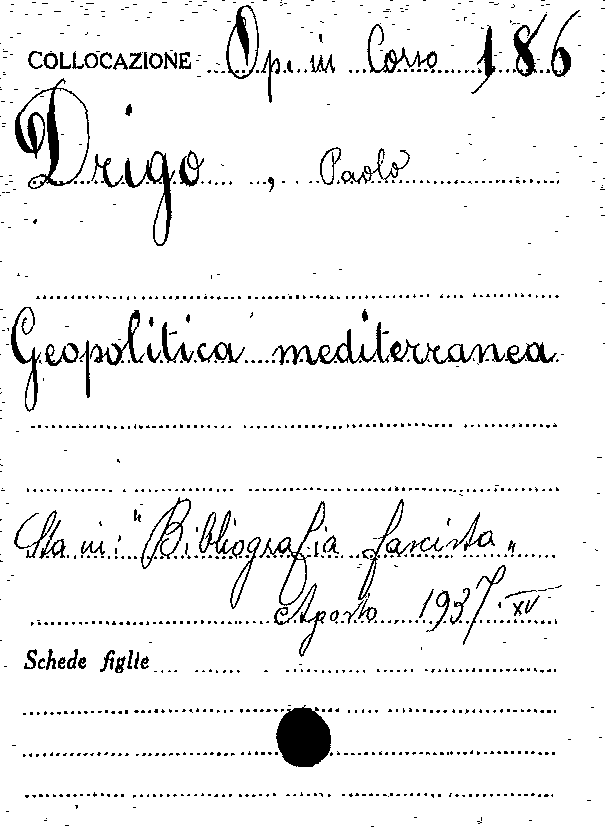 COLLOCAZIONE Op. in Corso 186
Drigo, Paolo
Geopolitica mediterranea
Sta in: "Bibliografia fascista"
Agosto 1937.XV
Schede figlie